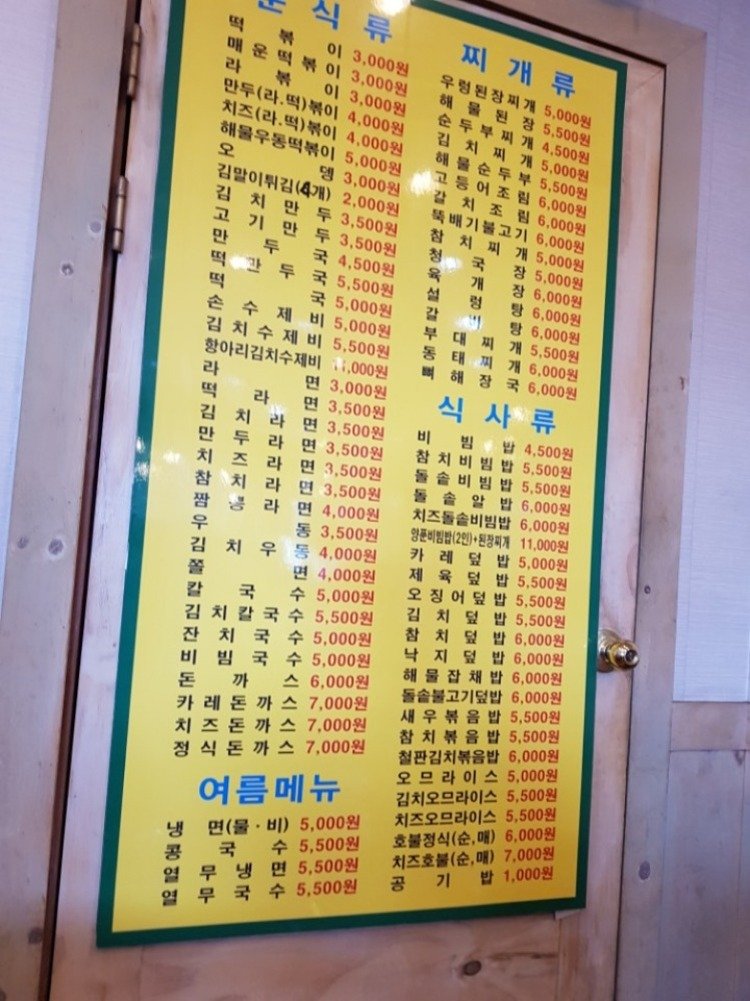 분식류
떡볶이 3,000원
매운떡볶이 3,000원
라볶이 3,000원
만두(라.떡)볶이 4,000원
치즈(라.떡)볶이 4,000원
해물우동떡볶이 5,000원
오뎅 3,000원
김말이튀김(4개) 2,000원
김치만두 3,500원
고기만두 3,500원
만두국 4,500원
떡만두국 5,500원
떡국 5,000원
손수제비 5,000원
김치수제비 5,500원
항아리김치수제비 11,000원
라면 3,000원
떡라면 3,500원
김치라면 3,500원
만두라면 3,500원
치즈라면 3,500원
참치라면 3,500원
짬뽕라면 4,000원
우동 3,500원
김치우동 4,000원
쫄면 4,000원
칼국수 5,000원
김치칼국수 5,500원
잔치국수 5,000원
비빔국수 5,000원
돈까스 6,000원
카레돈까스 7,000원
치즈돈까스 7,000원
정식돈까스 7,000원
여름메뉴
냉면(물·비) 5,000원
콩국수 5,500원
열무냉면 5,500원
열무국수 5,500원
찌개류
우렁된장찌개 5,000원
해물된장 5,500원
순두부찌개 4,500원
김치순두부 5,000원
해물순두부 5,500원
고등어조림 6,000원
갈치조림 6,000원
뚝배기불고기 6,000원
참치찌개 5,000원
청국장 5,000원
육개장 6,000원
설렁탕 6,000원
갈비탕 6,000원
부대찌개 5,500원
동태찌개 6,000원
뼈해장국 6,000원
식사류
비빔밥 4,500원
참치비빔밥 5,500원
돌솥비빔밥 5,500원
돌솥알밥 6,000원
치즈돌솥비빔밥 6,000원
양푼비빔밥(2인)+된장찌개 11,000원
카레덮밥 5,000원
제육덮밥 5,500원
오징어덮밥 5,500원
김치덮밥 5,500원
참치덮밥 6,000원
낙지덮밥 6,000원
해물잡채밥 6,000원
돌솥불고기덮밥 6,000원
새우볶음밥 5,500원
참치볶음밥 5,500원
철판김치볶음밥 6,000원
오므라이스 5,000원
김치오므라이스 5,500원
치즈오므라이스 5,500원
호불정식(순,매) 6,000원
치즈호불(순,매) 7,000원
공기밥 1,000원